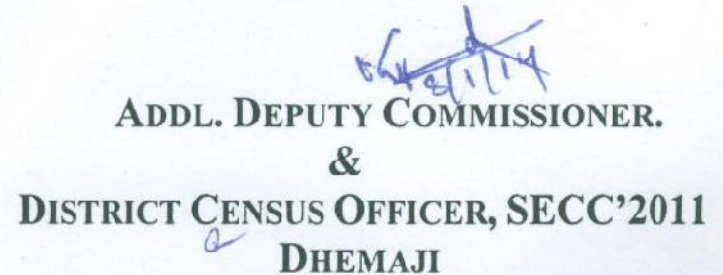 8/1/14
ADDL. DEPUTY COMMISSIONER.
&
DISTRICT CENSUS OFFICER, SECC'2011
DHEMAJI